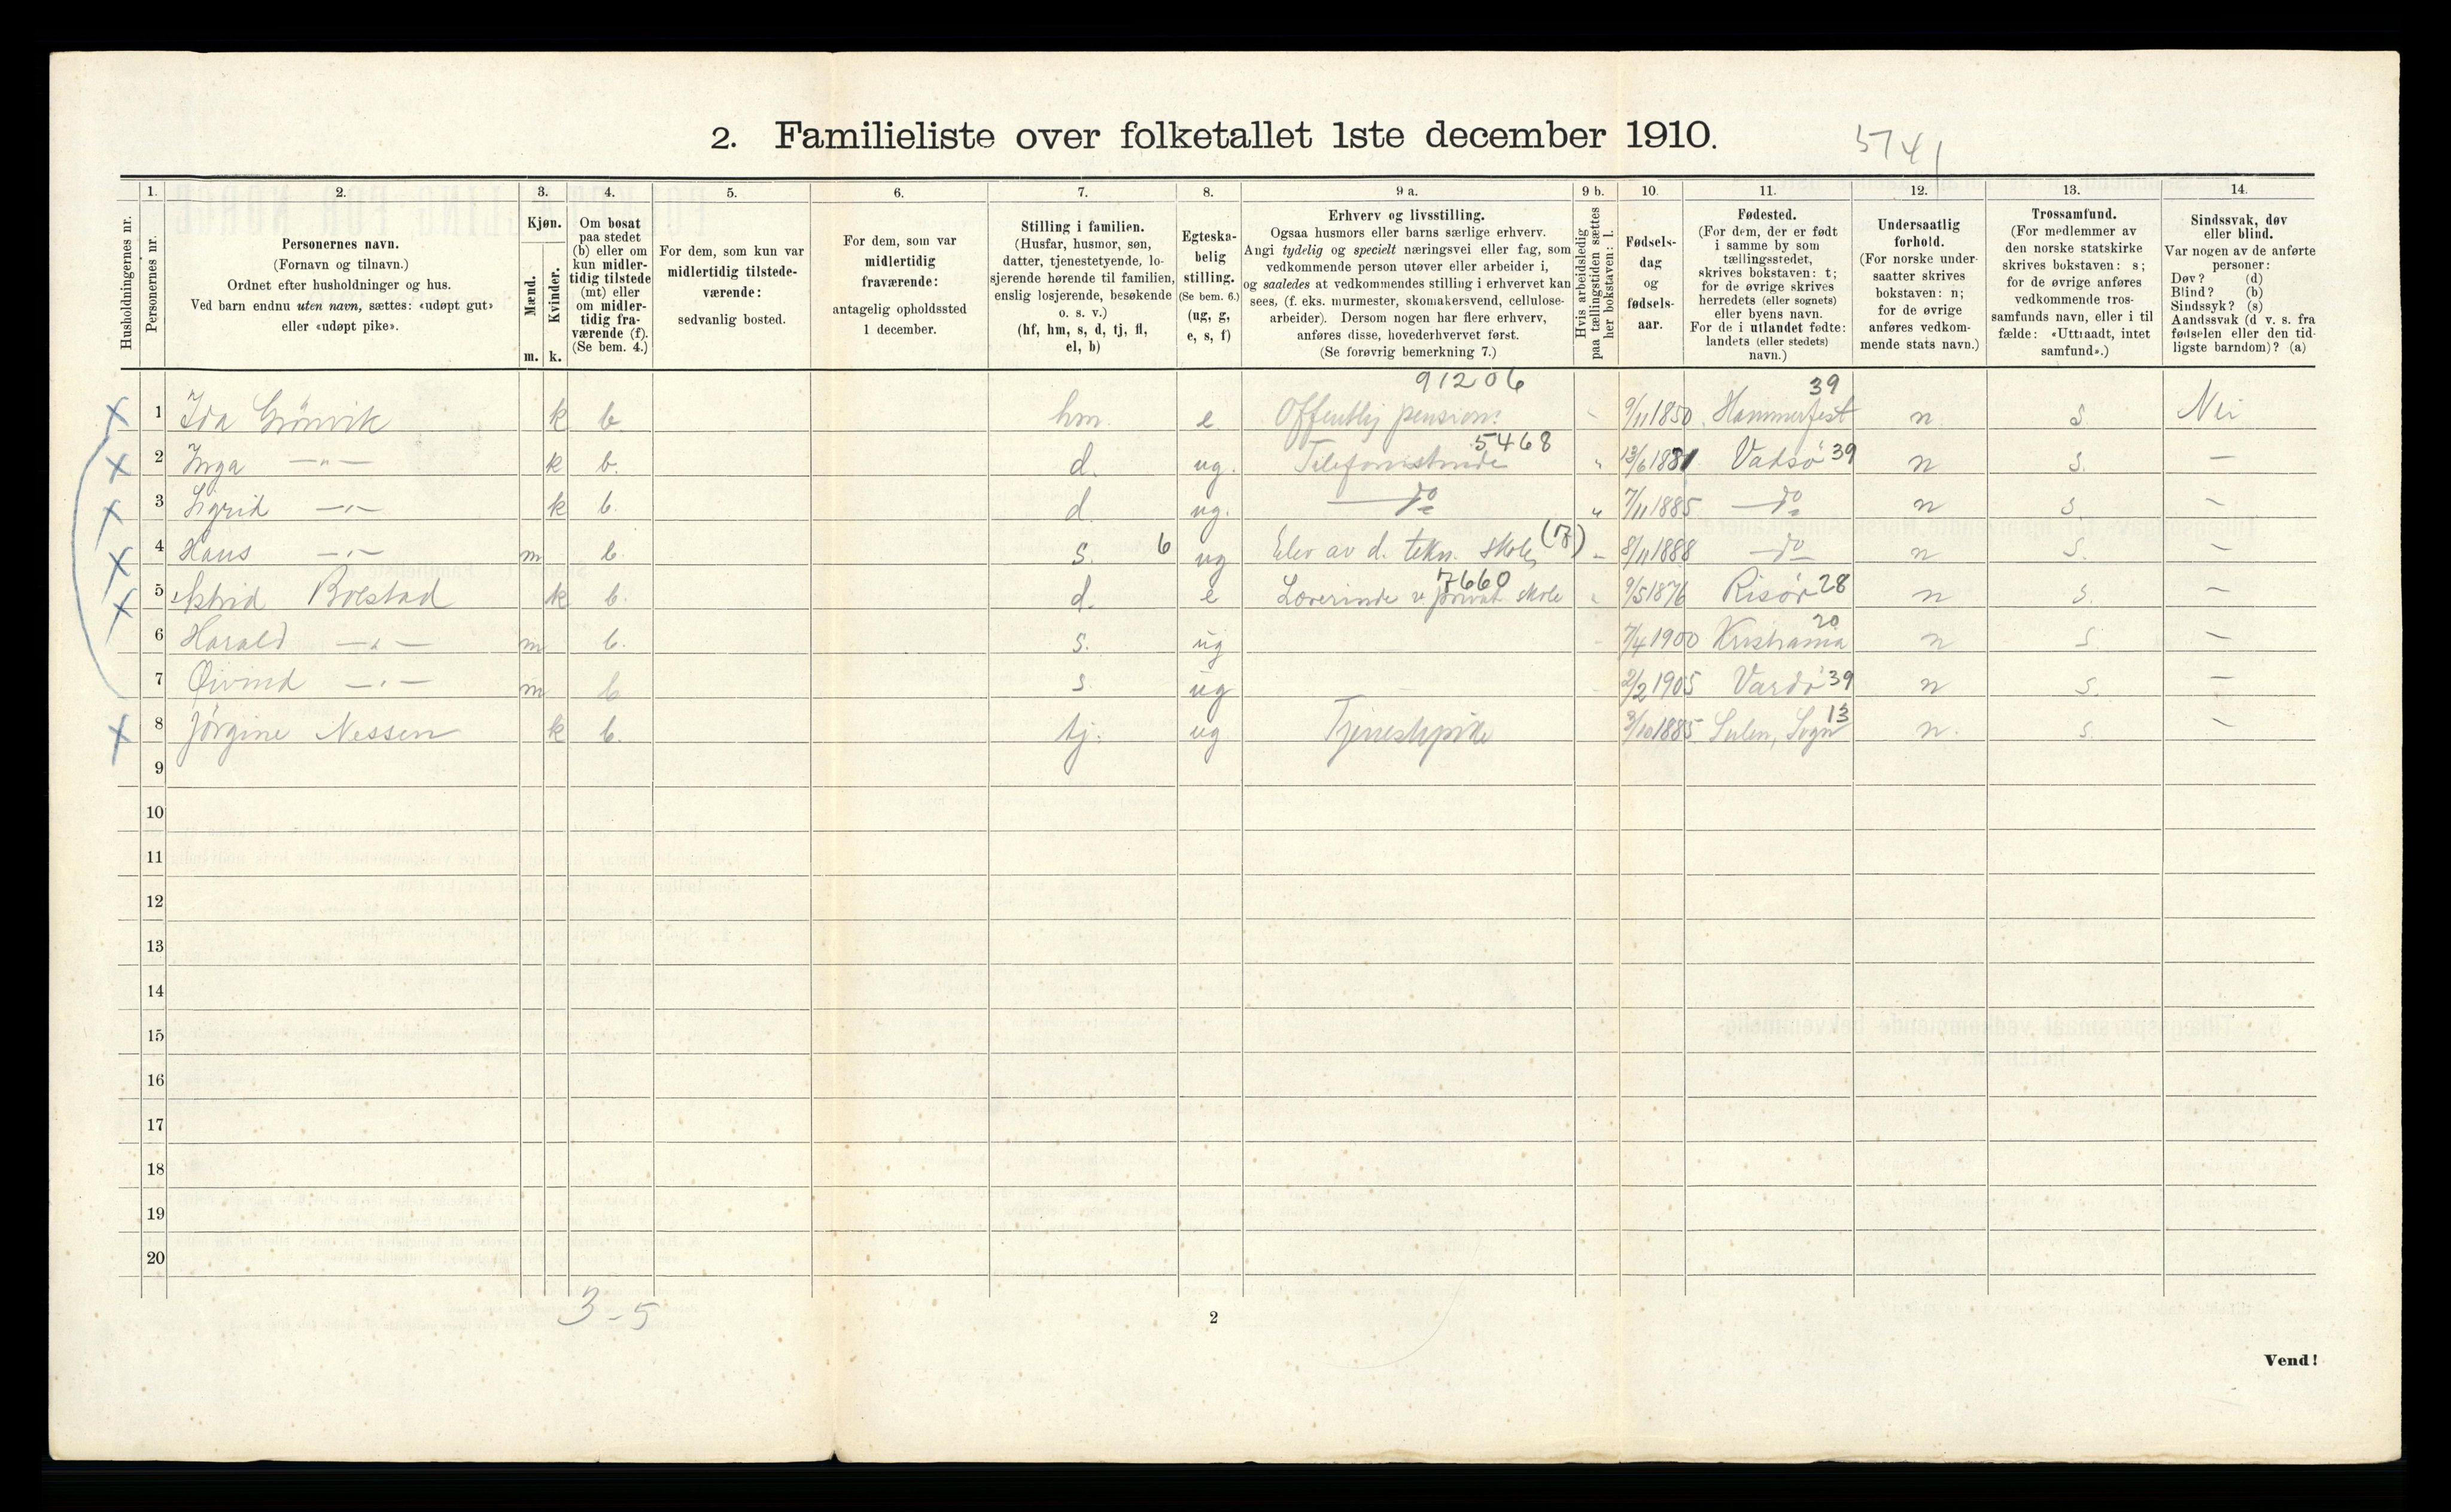 2. Familieliste over folketallet 1ste december 1910.
5741
Husholdningernes nr.
1. Personernes nr.
2. Personernes navn.
(Fornavn og tilnavn.)
Ordnet efter husholdninger og hus.
Ved barn endnu uten navn, sættes: «udøpt gut»
eller «udøpt pike».
3. Kjøn.
Mænd. m.
Kvinder. k.
4. Om bosat
paa stedet
(b) eller om
kun midler-
tidig tilstede
(mt) eller
om midler-
tidig fra-
værende (f).
(Se bem. 4.)
5. For dem, som kun var
midlertidig tilstede-
værende:
sedvanlig bosted.
6. For dem, som var
midlertidig
fraværende:
antagelig opholdssted
1 december.
7. Stilling i familien.
(Husfar, husmor, søn,
datter, tjenestetyende, lo-
sjerende hørende til familien,
enslig losjerende, besøkende
o. s. v.)
(hf, hm, s, d, tj, fl,
el, b)
8. Egteska-
belig
stilling.
(Se bem. 6.)
(ug, g,
e, s, f)
9 a. Erhverv og livsstilling.
Ogsaa husmors eller barns særlige erhverv.
Angi tydelig og specielt næringsvei eller fag, som
vedkommende person utøver eller arbeider i,
og saaledes at vedkommendes stilling i erhvervet kan
sees, (f. eks. murmester, skomakersvend, cellulose-
arbeider). Dersom nogen har flere erhverv,
anføres disse, hovederhvervet først.
(Se forøvrig bemerkning 7.)
9 b. Hvis arbeidsledig
paa tællingstiden sættes
her bokstaven: l.
10. Fødsels-
dag
og
fødsels-
aar.
11. Fødested.
(For dem, der er født
i samme by som
tællingsstedet,
skrives bokstaven: t;
for de øvrige skrives
herredets (eller sognets)
eller byens navn.
For de i utlandet fødte:
landets (eller stedets)
navn.)
12. Undersaatlig
forhold.
(For norske under-
saatter skrives
bokstaven: n;
for de øvrige
anføres vedkom-
mende stats navn.)
13. Trossamfund.
(For medlemmer av
den norske statskirke
skrives bokstaven: s;
for de øvrige anføres
vedkommende tros-
samfunds navn, eller i til
fælde: «Uttraadt, intet
samfund».)
14. Sindssvak, døv
eller blind.
Var nogen av de anførte
personer:
Døv? (d)
Blind? (b)
Sindssyk? (s)
Aandssvak (d v. s. fra
fødselen eller den tid-
ligste barndom)? (a)
91206 39
1 Ida Grönvik k b. hm. e. Offentlig pension. 9/11 1850 Hammerfest n s. Nei
5468
2 Inga —"— k b. d. ug. Telefonistinde " 13/6 1881 Vadsö 39 n s. —
3 Sigrid —"— k b. d. ug. — do — " 7/11 1885 — do — n s —
4 Hans —"— m b. s. 6 ug Elev av d. tekn. skole 8/11 1888 — do — n s. —
7660
5 Astrid Bolstad k b. d. e Lærerinde v. privat skole 9/5 1876 Risør 28 n s. —
20
6 Harald —"— m b. s. ug 7/4 1900 Kristiania n s —
7 Øivind —"— m b s ug 2/2 1905 Vardö 39 n s. —
13
8 Jörgine Nessen k b. tj. ug Tjenestepike 3/10 1885 Sulen, Sogn n. s. —
9
10
11
12
13
14
15
16
17
18
19
20
3-5
2
Vend!